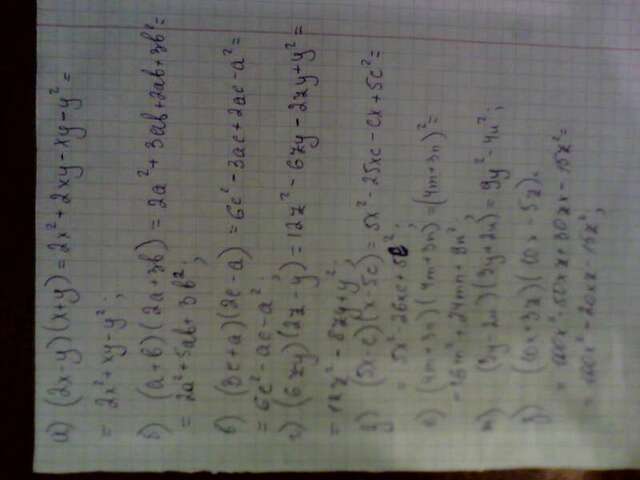 а) (2x-y)(x+y) = 2x²+2xy-xy-y² =
= 2x²+xy-y²;
б) (a+b)(2a+3b) = 2a²+3ab+2ab+3b² =
= 2a²+5ab+3b²;
в) (3c+a)(2c-a) = 6c²-3ac+2ac-a² =
= 6c²-ac-a²;
г) (6zy)(2z-y) = 12z²-6zy-2zy+y² =
= 12z²-8zy+y²;
д) (5x-c)(x-5c) = 5x²-25xc-cx+5c² =
= 5x²-26xc+5c²;
е) (4m+3n)(4m+3n) = (4m+3n)² =
= 16m²+24mn+9n²;
(3y-2u)(3y+2u) = 9y²-4u²;